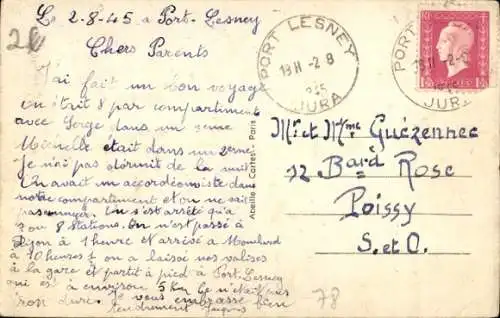 Le 2-8-45 à Port-Lesney
Chers Parents
J'ai fait un bon voyage
on était 8 par compartiment
avec Serge dans un 2eme
Michelle était dans un 2eme
Je n'ai pas dormit de la nuit
On avait un accordéoniste dans
notre compartiment et on ne sait
On s'est arrêté qu'a
8 Stations. On n'est passé à
Dijon à 1 heure et arrivé a Mouchard
à 10 heures on a laissé nos valises
à la gare et partit à pied à Port-Lesney
qui est à environ 5 km
dure. Je vous embrasse bien
tendrement Jacques
PORT LESNEY
19H -2 8
JURA
PORT
JURA
Mr et Mme Guézennec
12 Bard Rose
Poissy
S. et O.
Paris
78